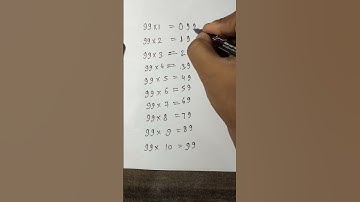 99×1 = 099
99×2 = 19
99×3 = 2
99×4 = 39
99×5 = 49
99×6 = 59
99×7 = 69
99×8 = 79
99×9 = 89
99×10 = 99